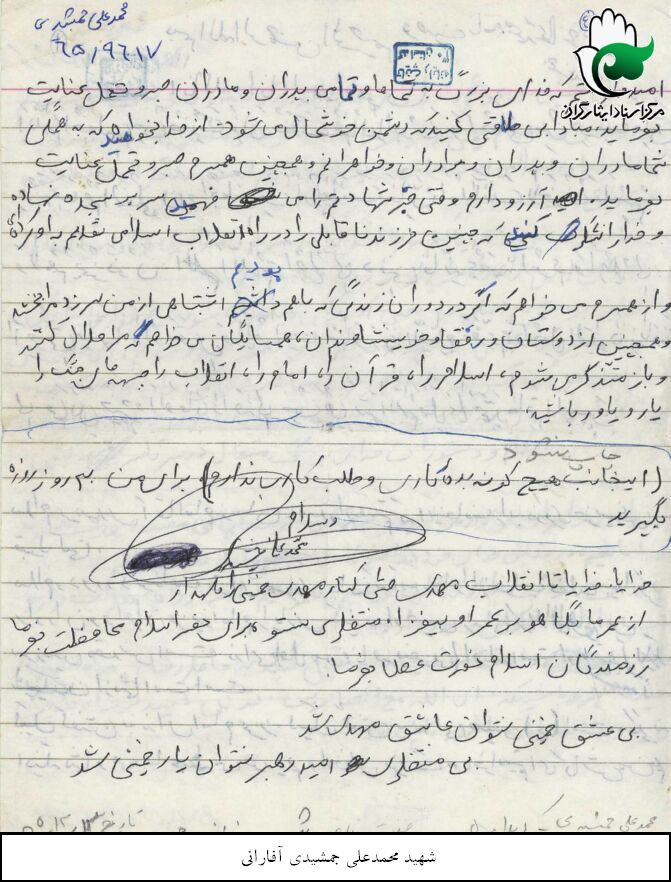 محمدعلی جمشیدی
۶۵/۹۶۱۷
مرکز اسناد ایثارگران
امیدوارم که خدای بزرگ به شماها و تمامی پدران و مادران صبر و تحمل عنایت
بفرماید، مبادا بی طاقتی کنید که دشمن خوشحال می شود. از خدا می‌خواهم که به همگی
شما مادران و پدران و برادران و خواهرانم و همچنین همسرم صبر و تحمل عنایت
بفرماید. آرزو دارم وقتی خبر شهادتم را می فهمید سر بر سجده نهاده
و خدا را شکر کنید که چنین فرزند ناقابلی را در راه انقلاب اسلامی تقدیم
بودیم
و از همسرم می خواهم که اگر در دوران زندگی که با هم اشتباهی از من سر زد مرا ببخشد
و همچنین از دوستان و رفقا و خویشاوندان، همسایگان می خواهم که مرا حلال کنند
و باز متذکر می شوم، اسلام را، قرآن را، امام را، انقلاب را جبهه های جنگ را
یار و یاور باشید.
چاپ نشود
(اینجانب هیچ گونه بدهکاری و طلب کاری ندارم) برای من روز روزه
بگیرید
والسلام
محمدعلی جمشیدی
خدایا خدایا تا انقلاب مهدی حتی کنار مهدی خمینی را نگهدار
از عمر ما بکاه و بر عمر او بیفزا. منتظری برای حفظ اسلام محافظت بفرما
رزمندگان اسلام نصرت عطا بفرما.
بی عشق خمینی نتوان عاشق مهدی شد
بی منتظری امید رهبر نتوان یار خمینی شد
محمد علی جمشیدی
تاریخ
شهید محمدعلی جمشیدی آفارانی